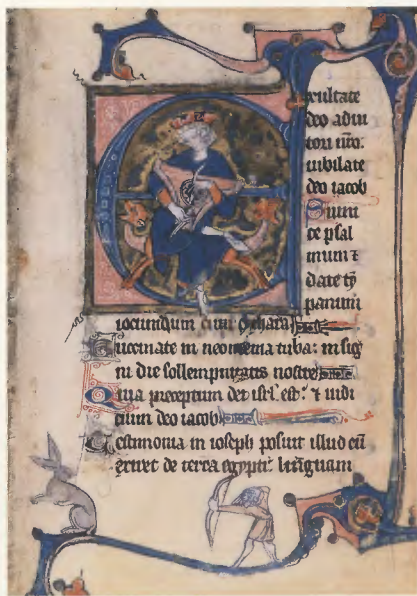 Exultate
deo adiu
tori nr̄o:
iubilate
deo iacob
Sumi
te psal
mum ⁊
date ty̅
panum
iocundum cum cythara
Buccinate in neomenia tuba: in sig
ni die sollempnitatis nostre
Quia preceptum det isrl̄. est: ⁊ iudi
cium deo iacob
Testimonia in ioseph posuit illud cū
exiret de terra egypti: linguam